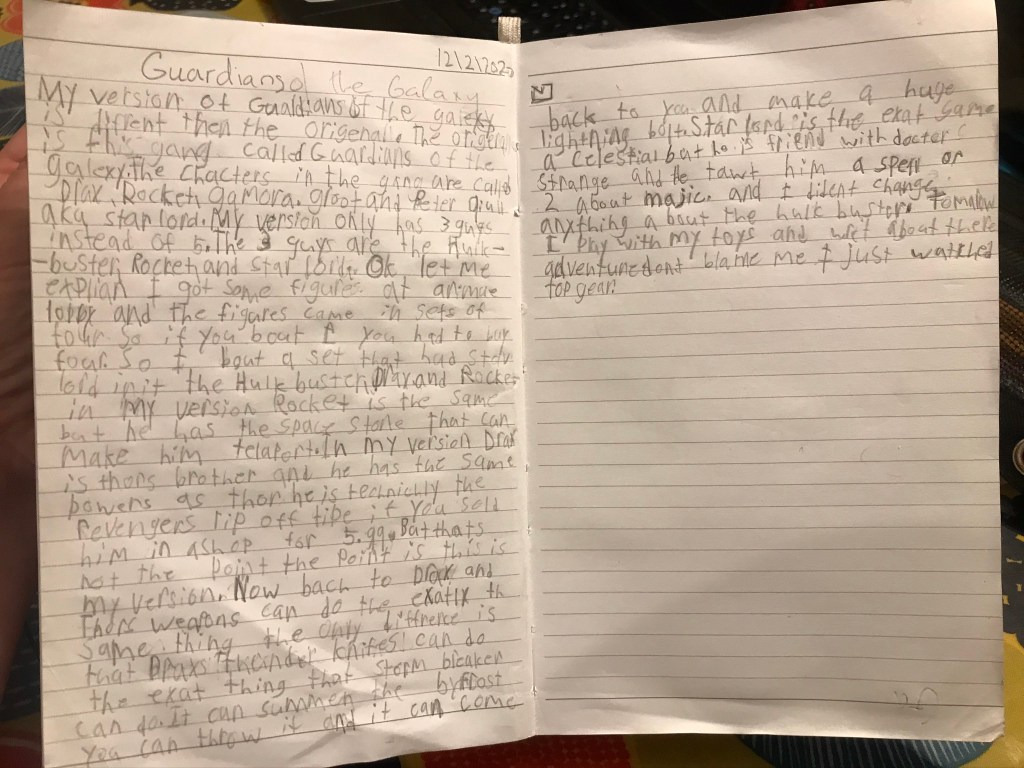 12/2/202
Guardians of the Galaxy
My version of Guardians of the galexy
is diffrent then the origenal. The origenal
is this gang called Guardians of the
Galaxy. The chacters in the gang are called
Drax, Rocket, gamora, groot and Peter Quill
aka star lord. My version only has 3 guys
instead of 5. The 3 guys are the Hulk-
-buster, Rocket, and star lord. Ok let me
explian I got some figures at
and the figures came in sets of
four so if you bout 1 you had to buy
four. So I bout a set that had star
lord in it the Hulk buster, Drax and Rocket
in my version Rocket is the same
but he has the space stone that can
make him telaport. In my version Drax
is thors brother and he has the same
powers as thor. he is technically the
Revengers rip off tipe if you sold
him in a shop for 5.99. But thats
not the point the point is this is
my version. Now back to Drax and
Thors weapons can do the exatly th
same thing the only diffrence is
that Draxs thunder knifes can do
the exat thing that storm bleaker
can do. It can summon the byfrost
you can throw it and it can come
back to you and make a huge
lightning bolt. Star lord is the exat same
a Celestial but he is friend with docter
strange and he tawt him a spell or
2 about majic. and I dident change
anything about the hulk buster. Tomalow
I play with my toys and writ about there
adventure dont blame me I just watched
top gear!